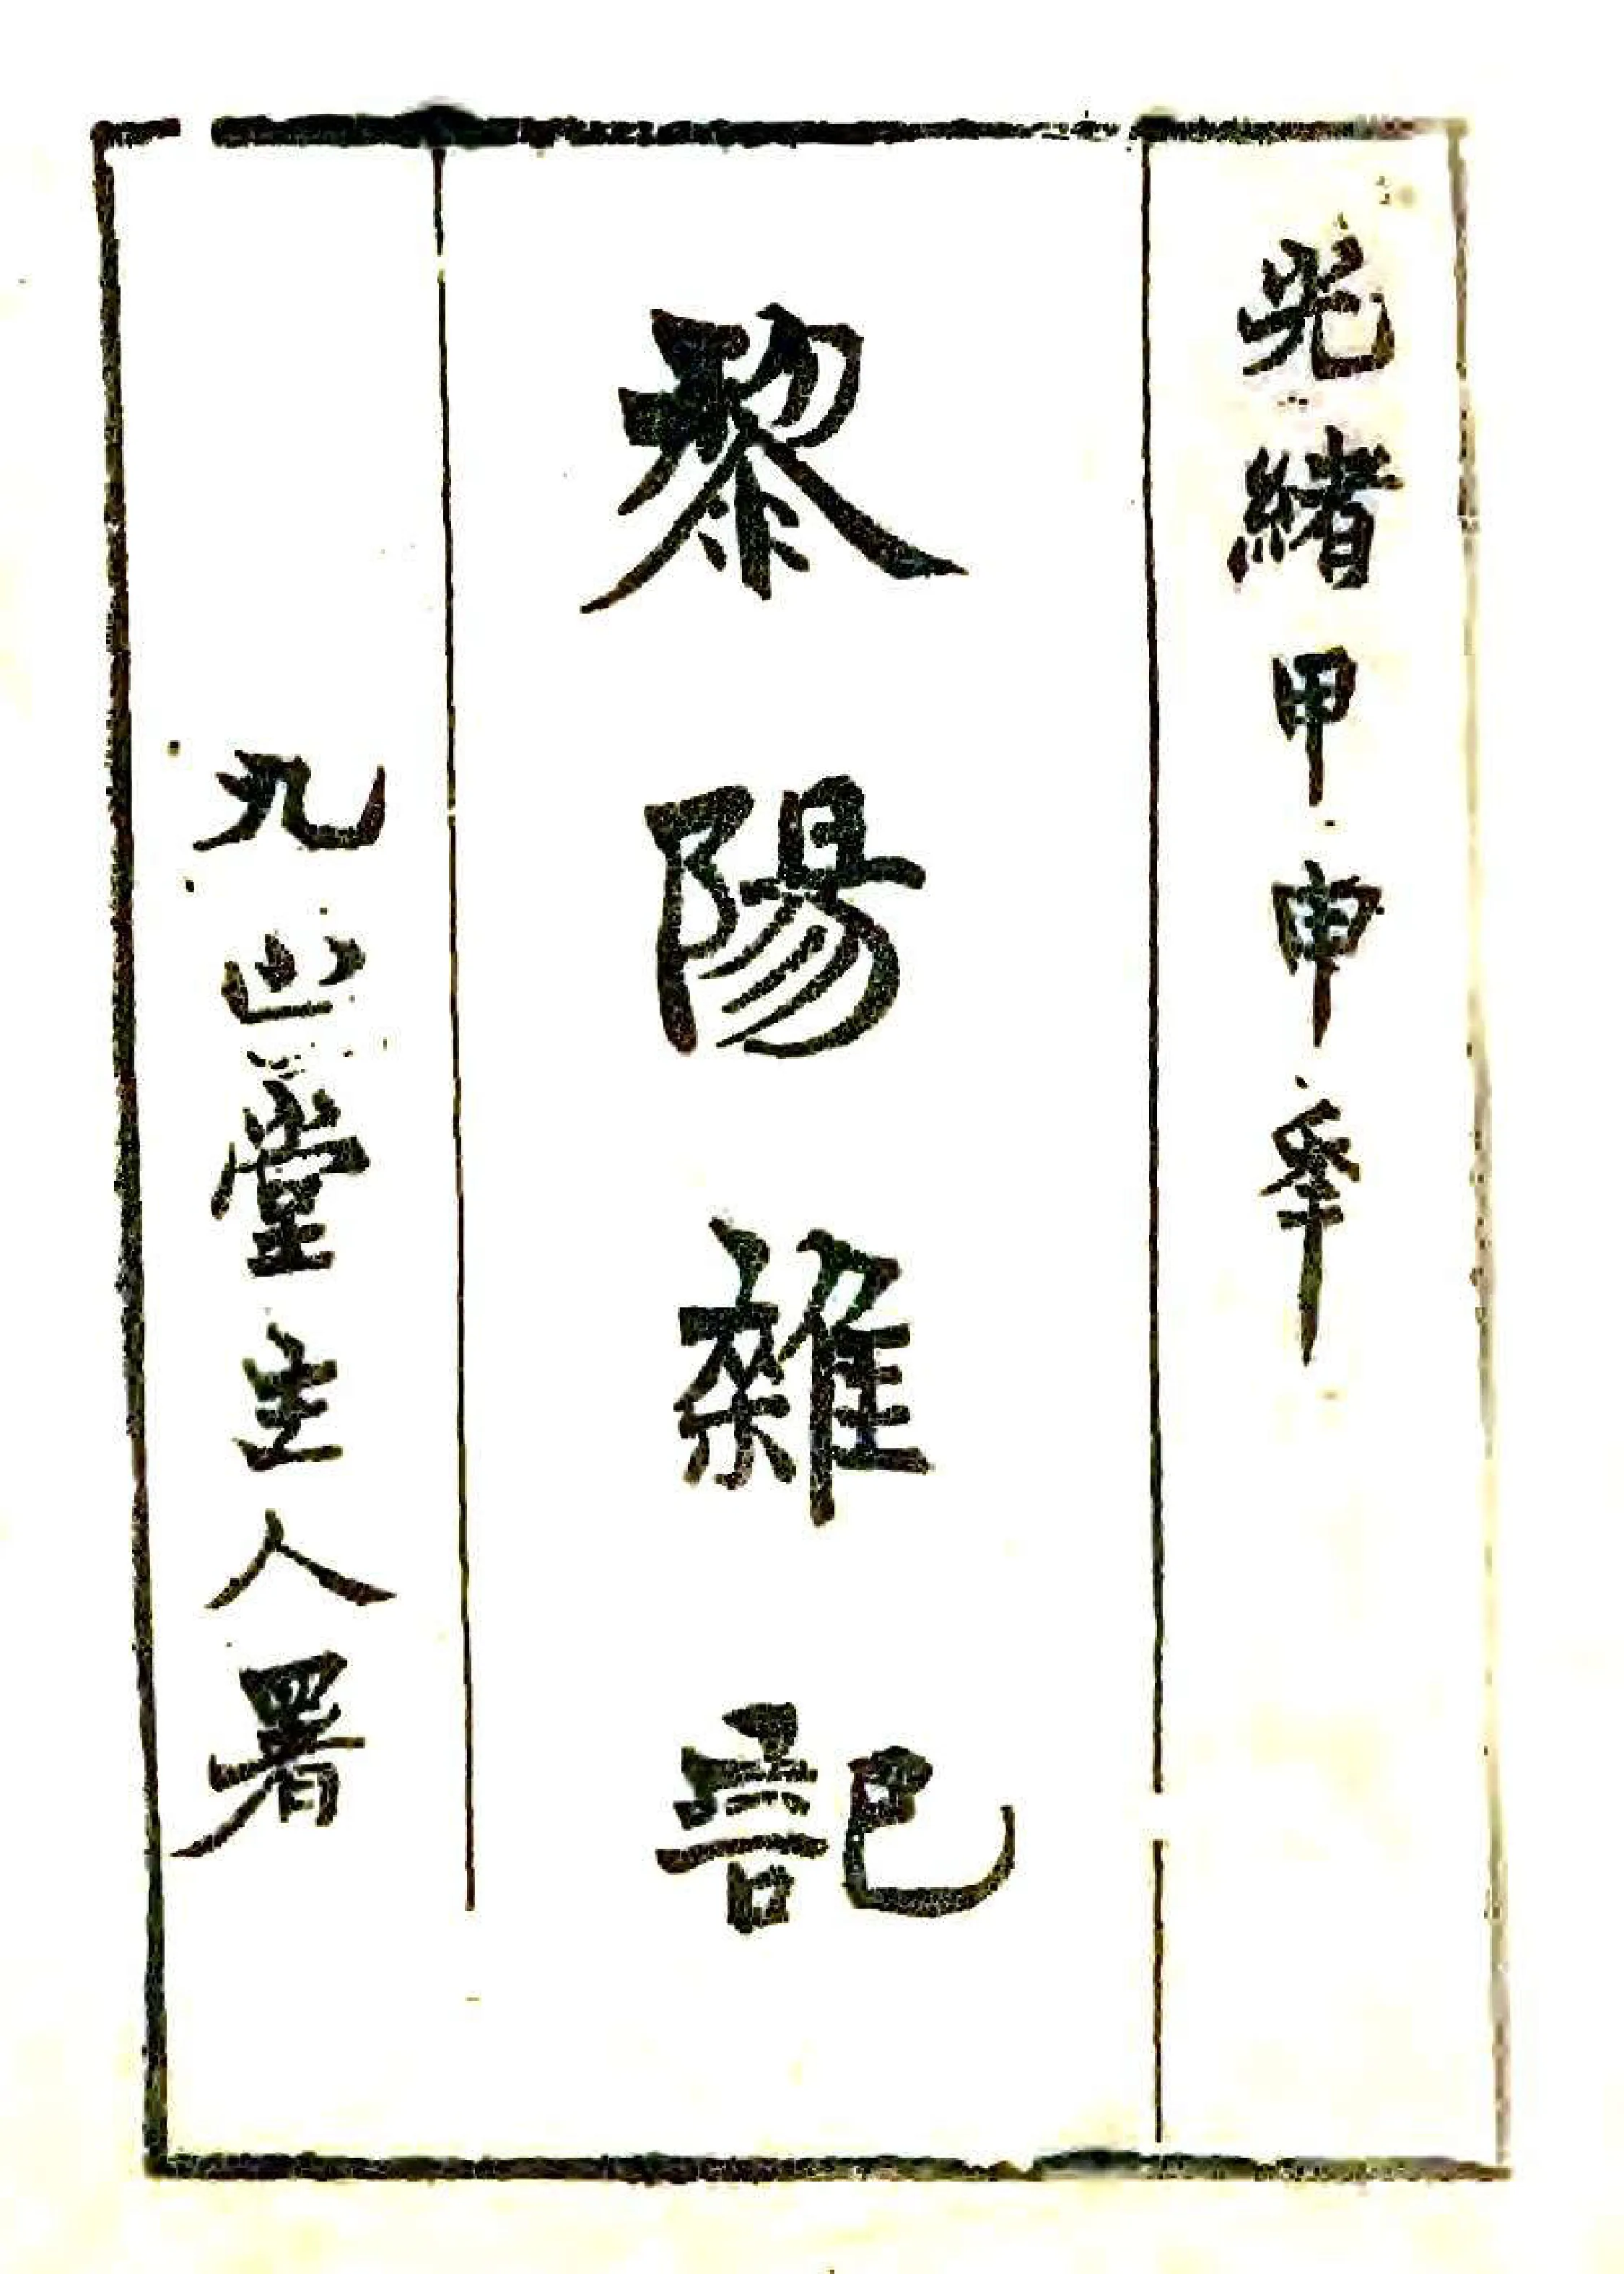 光緒甲申年
黎陽雜記
九世堂主人署